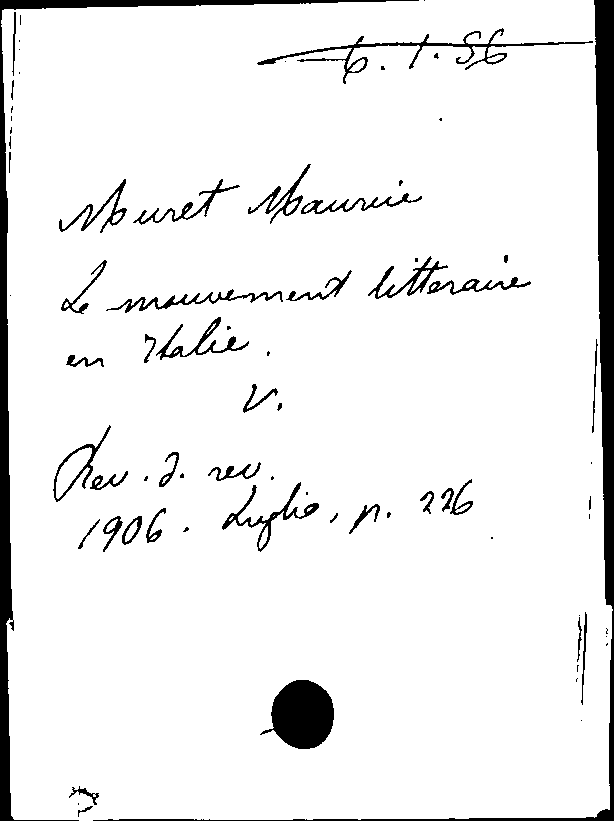 6. 1. 56
Muret Maurice
Le mouvement litteraire
en Italie.
V.
Rev. d. rev.
1906. Luglio, p. 226